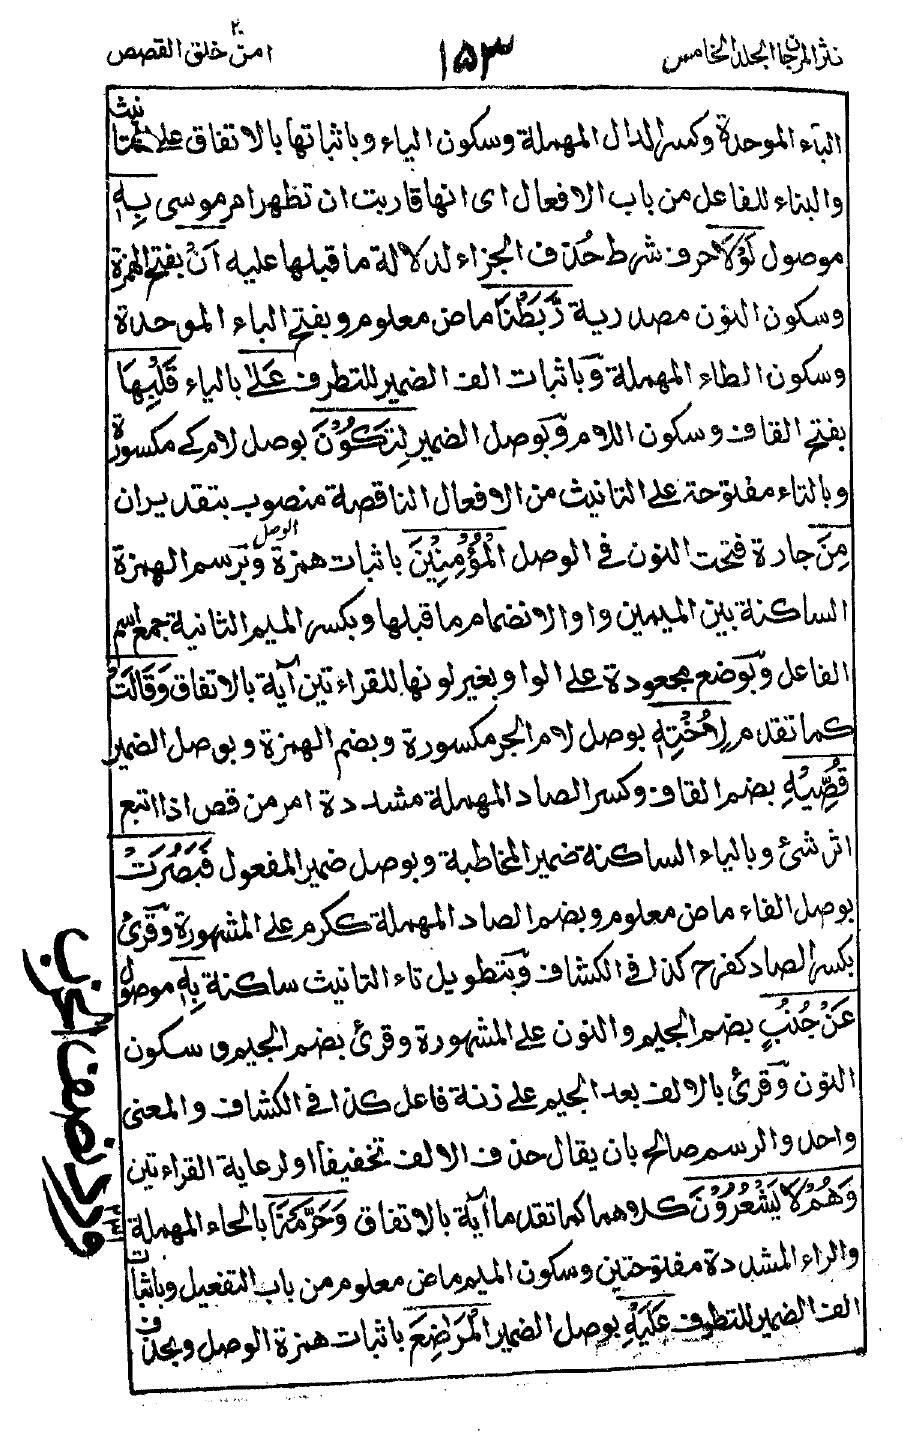 نثر المرجان الجلد الخامس
١٥٣
امن خلق ٢٠ القصص
الباء الموحدة وكسر الدال المهملة وسكون الياء وباثباتها بالاتفاق على التانيث
والبناء للفاعل من باب الافعال اى انها قاربت ان تظهر امر موسى بِهٖ
موصول لَوْلَا حرف شرط حُذف الجزاء لدلالة ما قبلها عليه اَنْ بفتح الهمزة
وسكون النون مصدرية رَّبَطْنَا ماض معلوم وبفتح الباء الموحدة
وسكون الطاء المهملة وباثبات الف الضمير للتطرف عَلٰى بالياء قَلْبِهَا
بفتح القاف وسكون اللام وبوصل الضمير لِتَكُوْنَ بوصل لام كے مكسورة
وبالتاء مفتوحة على التانيث من الافعال الناقصة منصوب بتقدير ان
مِنَ جارة فتحت النون فى الوصل الْمُؤْمِنِيْنَ باثبات همزة الوصل وبرسم الهمزة
الساكنة بين الميمين واوا لانضمام ما قبلها وبكسر الميم الثانية جمع اسم
الفاعل وبوضع مجعودة على الواو بغير لونها للقراءتين آية بالاتفاق وَقَالَتْ
كما تقدم لِاُخْتِهٖ بوصل لام الجر مكسورة وبضم الهمزة وبوصل الضمير
قُصِّيْهِ بضم القاف وكسر الصاد المهملة مشددة امر من قص اذا اتبع
اثر شئ وبالياء الساكنة ضمير المخاطبة وبوصل ضمير المفعول فَبَصُرَتْ
بوصل الفاء ماض معلوم وبضم الصاد المهملة ككرم على المشهورة وقرئ
بكسر الصاد كفرح كذا فى الكشاف وبتطويل تاء التانيث ساكنة بِهٖ موصول
عَنْ جُنُبٍ بضم الجيم والنون على المشهورة وقرئ بضم الجيم و سكون
النون وقرئ بالالف بعد الجيم على زنة فاعل كذا فى الكشاف والمعنى
واحد والرسم صالح بان يقال حذف الالف تخفيفا او لرعاية القراءتين
وَهُمْ لَا يَشْعُرُوْنَ كلاهما كما تقدما آية بالاتفاق وَحَرَّمْنَا بالحاء المهملة
والراء المشددة مفتوحتين وسكون الميم ماض معلوم من باب التفعيل وباثبات
الف الضمير للتطرف عَلَيْهِ بوصل الضمير الْمَرَاضِعَ باثبات همزة الوصل وبحذف
نصف الحزب